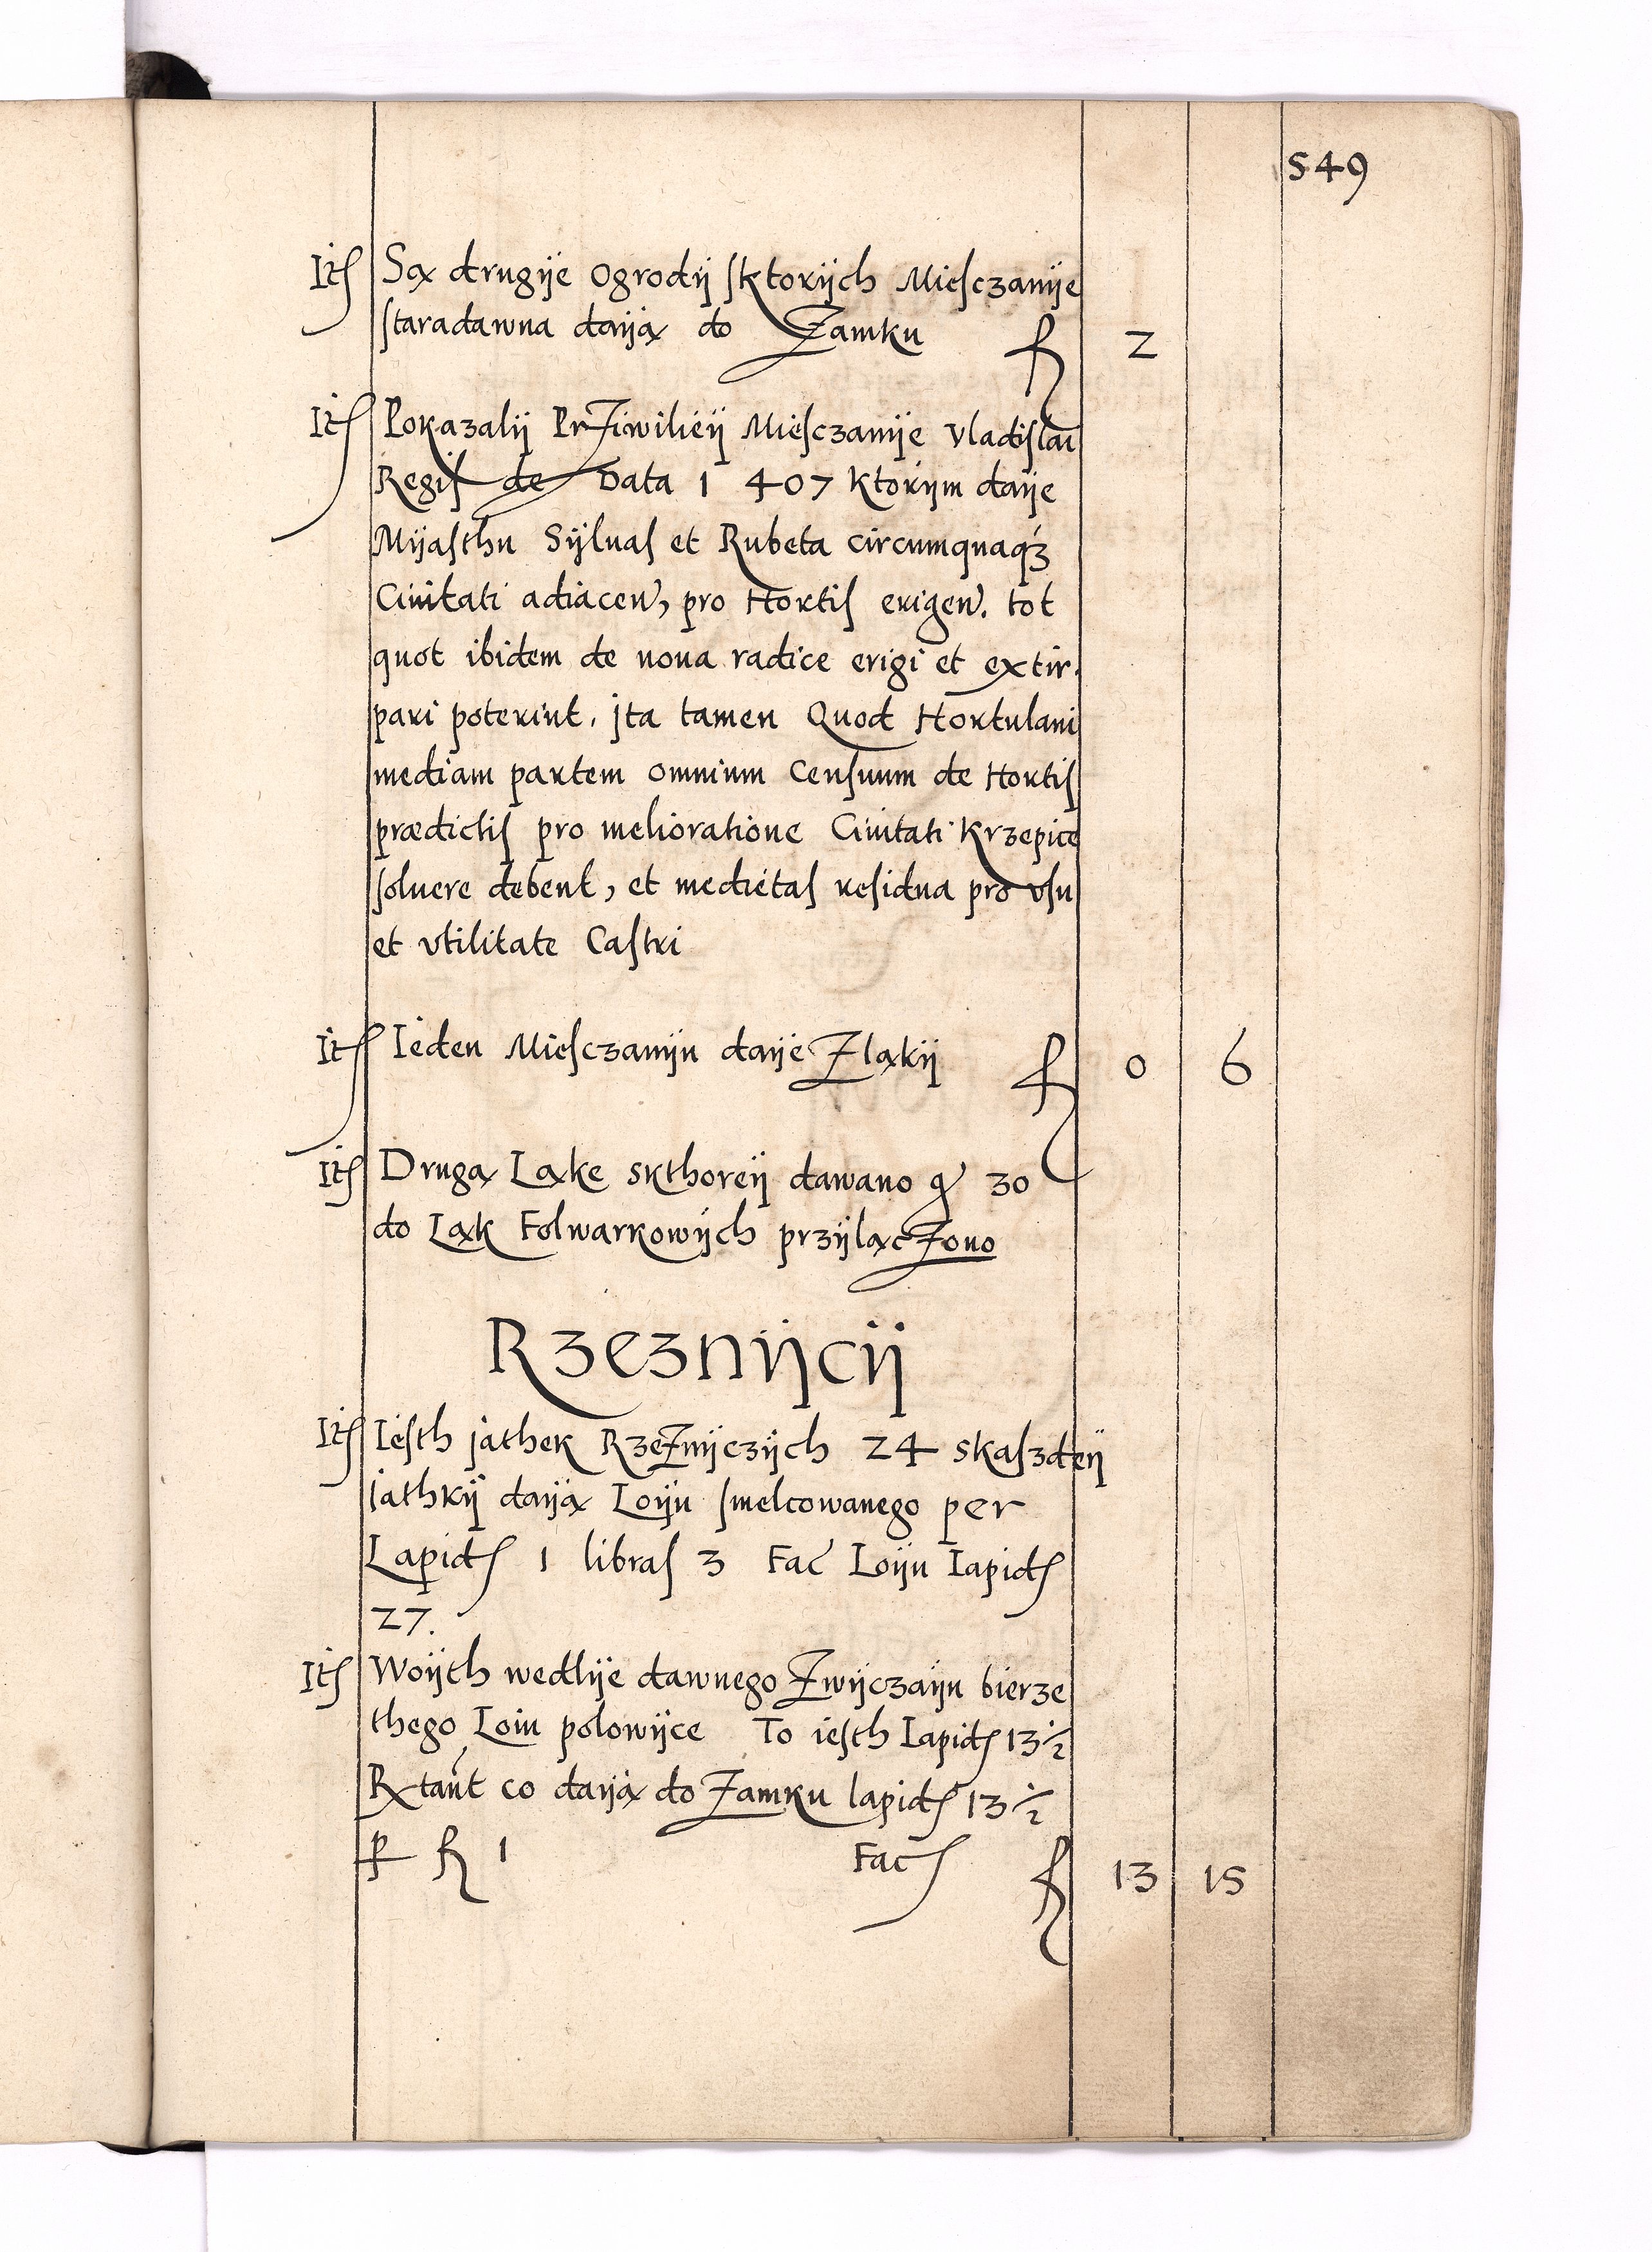 549
It Są drugije Ogrodij sktorijch Miesczanije
staradawna daiją do Zamku fl 2
It Pokazalij Prziwilieij Miesczanije Vladislai
Regis de Data 1407 ktorijm daije
Mijasthu Sijluas et Rubeta circumquaqz
Ciuitati adiacen, pro Hortis erigen. tot
quot ibidem de noua radice erigi et extir.
pari poterint, jta tamen Quod Hortulani
mediam partem omnium Censuum de Hortis
prædictis pro melioratione Ciuitati Krzepice
soluere debent, et medietas residua pro vsu
et vtilitate Castri
It Ieden Miesczanijn daije Zląkij fl 0 6
It Drugą Ląke skthoreij dawano gr 30
do Ląk Folwarkowijch przijlączono
Rzeznijcij
It Iesth jathek Rzeznijczijch 24 skaszdeij
jathkij daiją Loiju smelcowanego per
Lapid 1 libras 3 Fac Loiju Lapid
27.
It Woijth wedlije dawnego Zwijczaiju bierze
thego Loiu polowijce To iesth Lapid 13 1/2
Rxtant co daiją do Zamku lapid 13 1/2
p fl 1 Fac fl 13 15